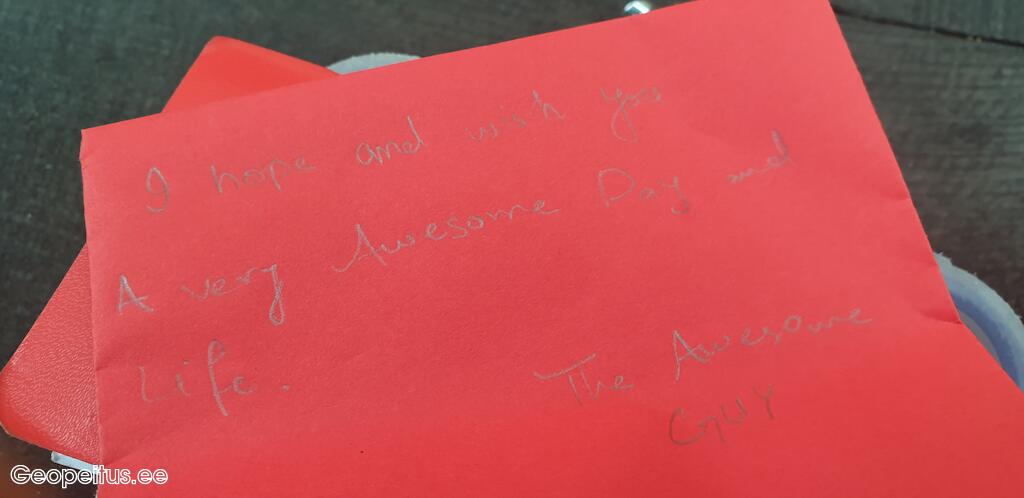 I hope and wish you
A very Awesome Day and
Life.
The Awesome
Guy
Geopeitus.ee